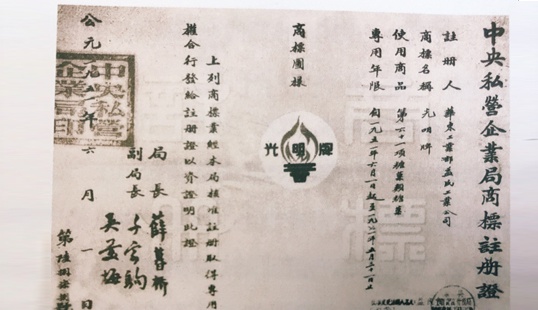 中央私營企業局商標註册證
註册人 華東工業部益民工業公司
商標名稱 光明牌
使用商品 第六十一項雜菓類雜菓
專用年限 自一九五一年六月一日起至一九七一年五月三十一日止
商標圖樣
光明牌
上列商標業經本局核准註册取得專用
權合行發給註册證以資證明此證
局長 薛暮橋
副局長 千家駒
吳羹梅
公元一九五一年六月一日
中央私營企業局印
商標